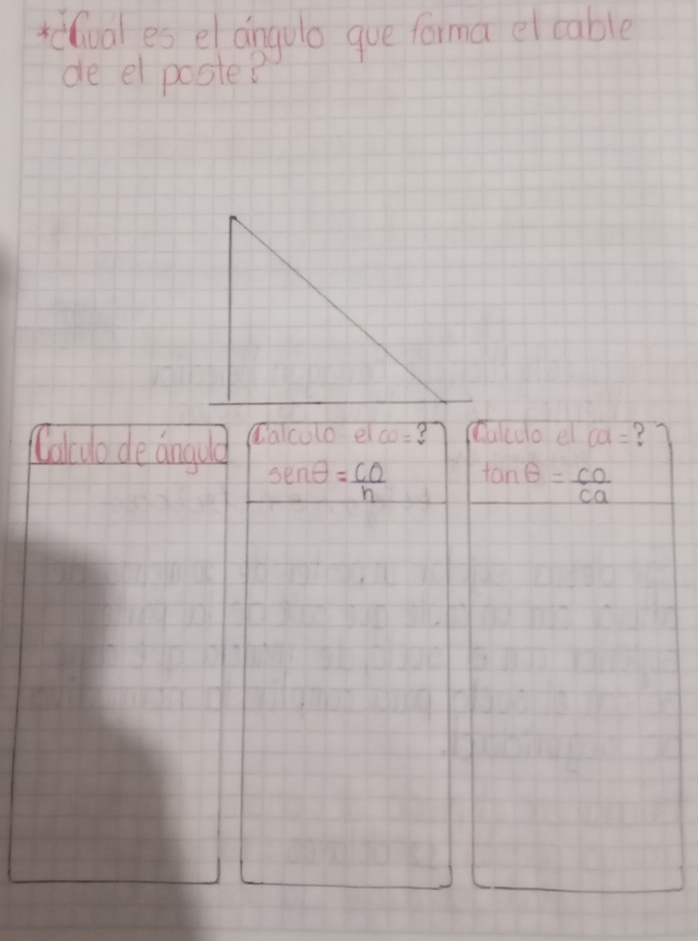 *¿Cuál es el ángulo que forma el cable
de el poste?
Calculo de ángulo
Calculo el co=?
senθ = co
h
Calculo el ca=?
tanθ = co
ca